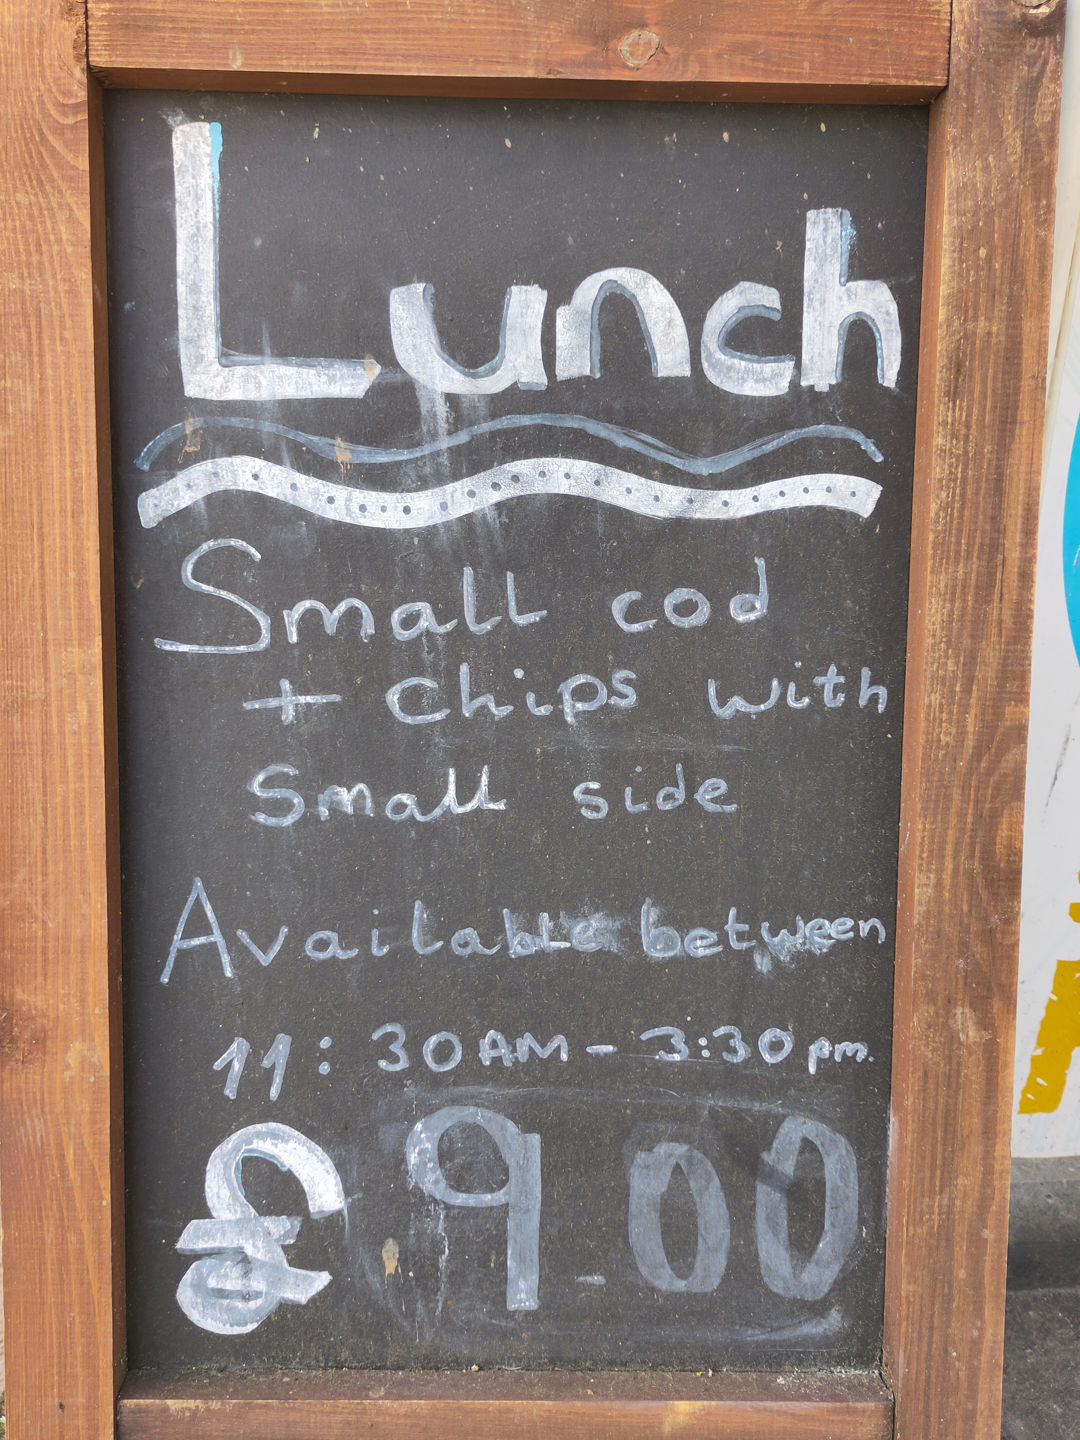 Lunch
Small cod
+ chips with
Small side
Available between
11:30AM - 3:30pm.
£9.00